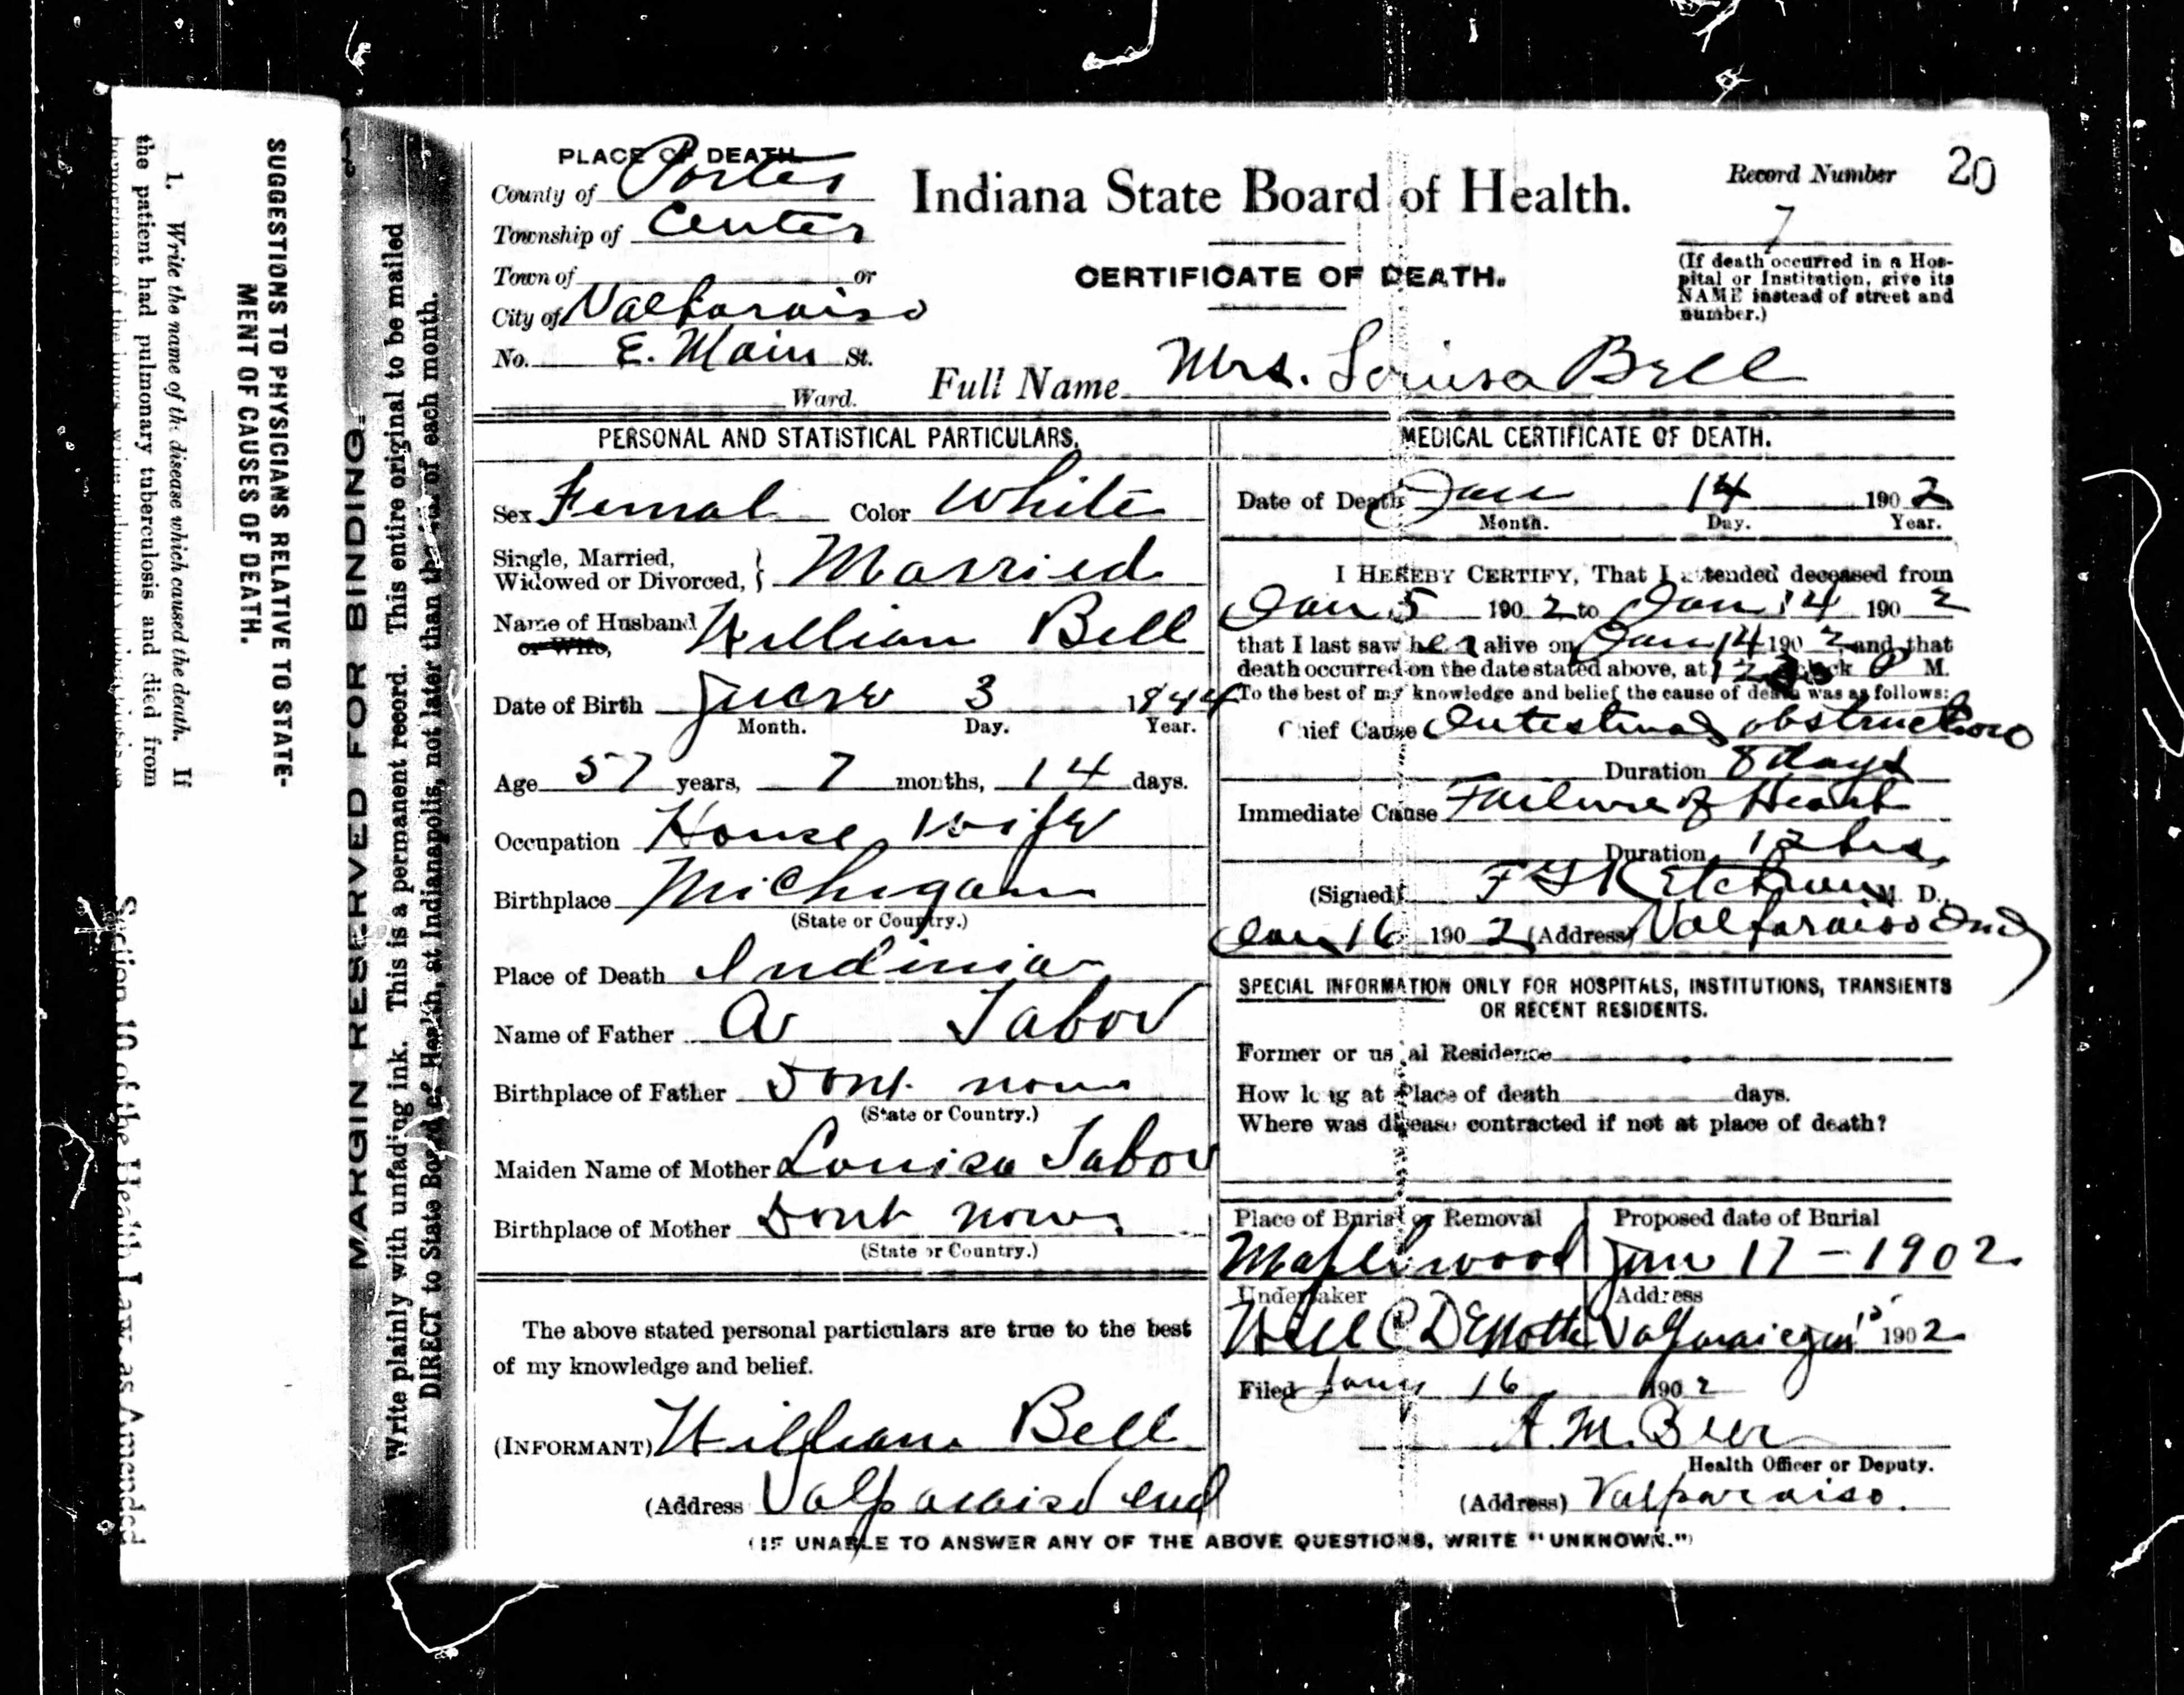 SUGGESTIONS TO PHYSICIANS RELATIVE TO STATE-
MENT OF CAUSES OF DEATH.
1. Write the name of the disease which caused the death. If
the patient had pulmonary tuberculosis and died from
Section 10 of the Health Law, as Amended
MARGIN RESERVED FOR BINDING.
Write plainly with unfading ink. This is a permanent record. This entire original to be mailed
DIRECT to State Board of Health, at Indianapolis, not later than the of each month.
PLACE OF DEATH
County of Porter
Township of Center
Town of or
City of Valparaiso
No. E. Main St.
Ward.
Indiana State Board of Health.
CERTIFICATE OF DEATH.
Record Number 20
7
(If death occurred in a Hos-
pital or Institution, give its
NAME instead of street and
number.)
Full Name Mrs. Louisa Bell
PERSONAL AND STATISTICAL PARTICULARS.
Sex Femal Color White
Single, Married,
Widowed or Divorced, } Married
Name of Husband William Bell
or Wife,
Date of Birth June 3 1844
Month. Day. Year.
Age 57 years, 7 months, 14 days.
Occupation House wife
Birthplace Michigan
(State or Country.)
Place of Death Indinia
Name of Father A Tabor
Birthplace of Father Dont now
(State or Country.)
Maiden Name of Mother Louisa Tabor
Birthplace of Mother Dont now
(State or Country.)
The above stated personal particulars are true to the best
of my knowledge and belief.
(INFORMANT) William Bell
(Address Valparaiso Ind
MEDICAL CERTIFICATE OF DEATH.
Date of Death Jan 14 1902
Month. Day. Year.
I HEREBY CERTIFY, That I attended deceased from
Jan 5 1902 to Jan 14 1902
that I last saw her alive on Jan 14 1902 and that
death occurred on the date stated above, at 12 o'clock P M.
To the best of my knowledge and belief the cause of death was as follows:
Chief Cause Intestinal obstruction
Duration 8 days
Immediate Cause Failure of Heart
Duration 12 hrs.
(Signed) Ketchum M. D.
Jan 16 1902 (Address) Valparaiso Ind
SPECIAL INFORMATION ONLY FOR HOSPITALS, INSTITUTIONS, TRANSIENTS
OR RECENT RESIDENTS.
Former or usual Residence
How long at Place of death days.
Where was disease contracted if not at place of death?
Place of Burial or Removal Proposed date of Burial
Maplewood Jan 17-1902
Undertaker Address
Will C DeMotte Valparaiso 1902
Filed Jany 16 1902
A. M. Beer
Health Officer or Deputy.
(Address) Valparaiso.
(IF UNABLE TO ANSWER ANY OF THE ABOVE QUESTIONS, WRITE "UNKNOWN.")